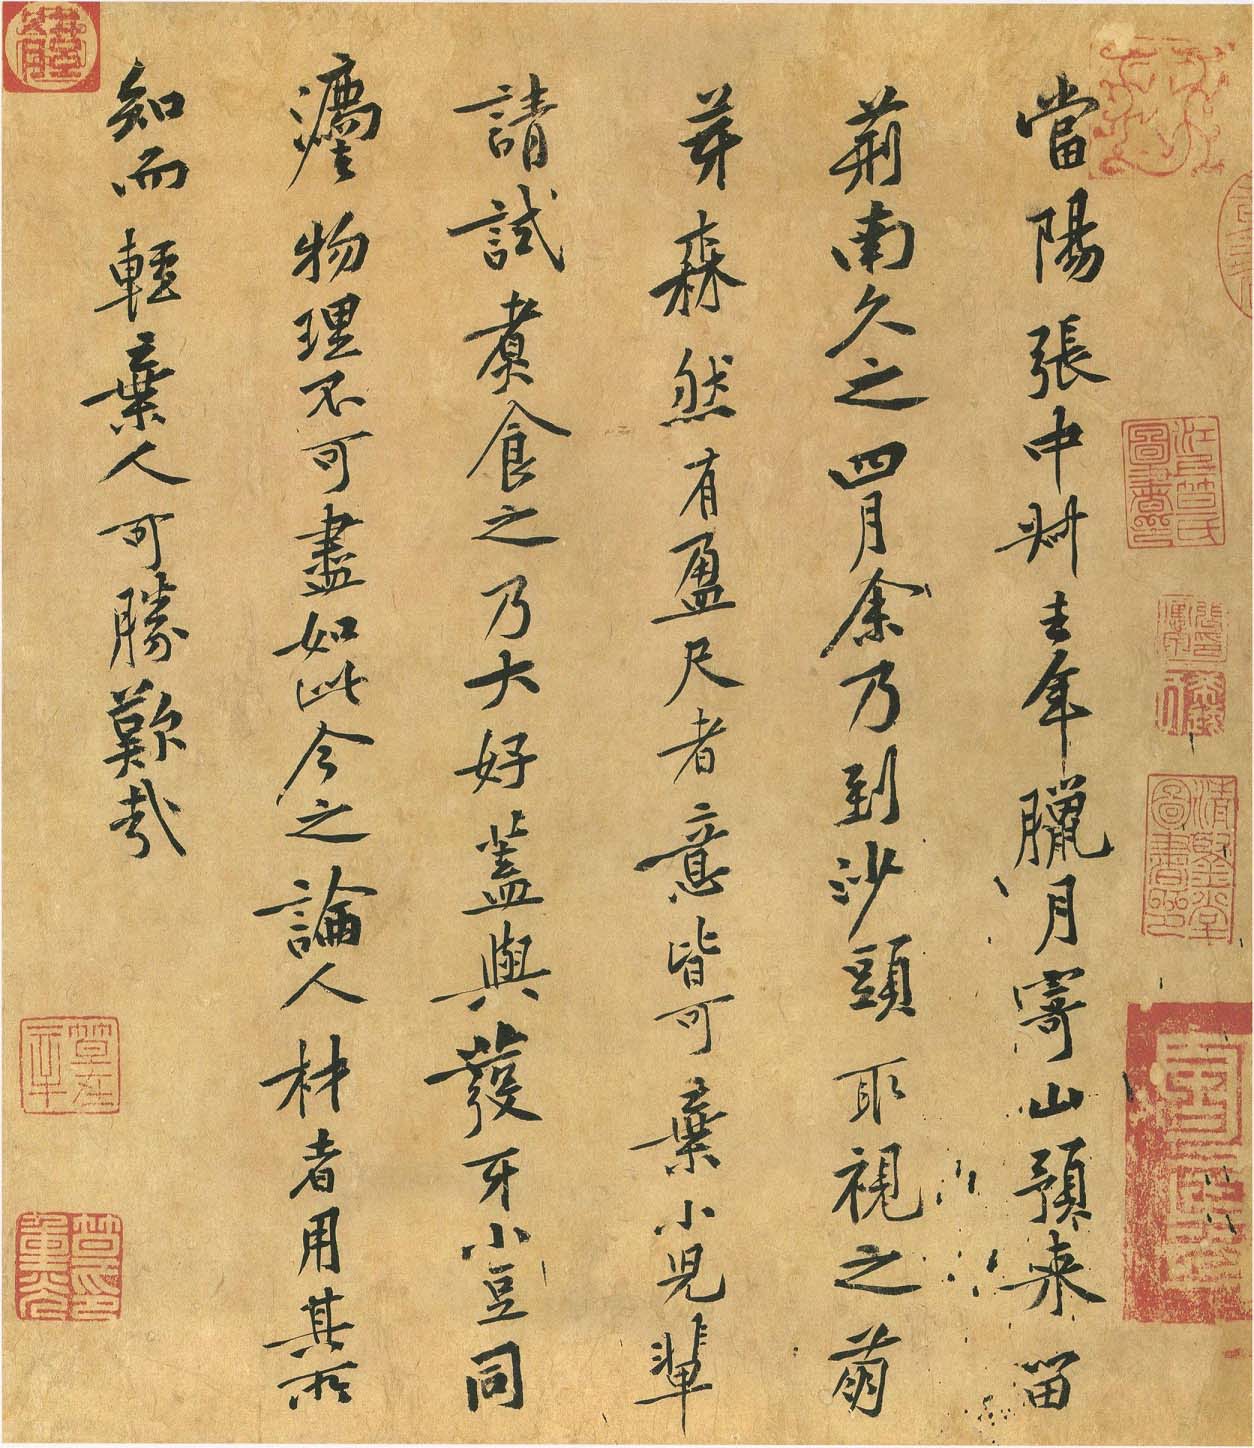 當陽張中卌去年臘月寄山預来留
荆南久之四月余乃到沙頭取視之萌
芽森然有盈尺者意皆可棄小兒輩
請試煑食之乃大好蓋與發牙小豆同
灋物理不可盡如此今之論人材者用其所
知而輕棄人可勝歎哉
江上笪氏圖書印